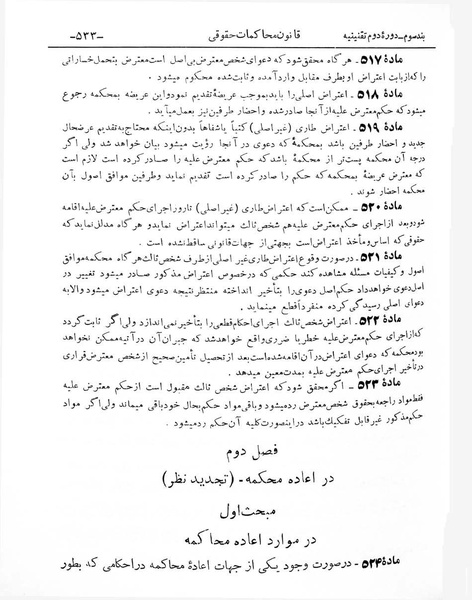 بند سوم ــ دورهٔ دوم تقنینیه
قانون محاکمات حقوقی
ـ ۵۳۳ ـ
مادهٔ ۵۱۷ ـ هرگاه محقق شود که دعوای شخص معترض بی‌اصل است معترض بتحمل خساراتی
را که از بابت اعتراض او بطرف مقابل وارد آمده و ثابت شده محکوم میشود .
مادهٔ ۵۱۸ ـ اعتراض اصلی را باید بموجب عریضه تقدیم نمود و این عریضه بمحکمه رجوع
میشود که حکم معترض علیه از آنجا صادر شده و احضار طرفین نیز بعمل میآید .
مادهٔ ۵۱۹ ـ اعتراض طاری (غیر اصلی) کتباً یا شفاهاً بدون اینکه محتاج به تقدیم عرضحال
جدید و احضار طرفین باشد بمحکمهٔ که دعوی در آنجا رؤیت میشود بیان خواهد شد ولی اگر
درجه آن محکمه پست‌تر از محکمهٔ باشد که حکم معترض علیه را صادر کرده است لازم است
که معترض عریضهٔ بمحکمه که حکم را صادر کرده است تقدیم نماید و طرفین موافق اصول بآن
محکمه احضار شوند .
مادهٔ ۵۲۰ ـ ممکن است که اعتراض طاری (غیر اصلی) تا روز اجرای حکم معترض علیه اقامه
شود و بعد از اجرای حکم معترض علیه هم شخص ثالث میتواند اعتراض نماید و هرگاه مدلل نماید که
حقوقی که اساس و مأخذ اعتراض است بجهتی از جهات قانونی ساقط نشده است .
مادهٔ ۵۲۱ ـ در صورت وقوع اعتراض طاری غیر اصلی از طرف شخص ثالث هرگاه محکمه موافق
اصول و کیفیات مسئله مشاهده کند حکمی که در خصوص اعتراض مذکور صادر میشود تغییر در
اصل دعوی خواهد داد حکم اصل دعوی را بتأخیر انداخته منتظر نتیجه دعوی اعتراض میشود والا به
دعوای اصلی رسیدگی کرده منفرداً قطع مینماید .
مادهٔ ۵۲۲ ـ اعتراض شخص ثالث اجرای احکام قطعی را بتأخیر نمی‌اندازد ولی اگر ثابت گردد
که از اجرای حکم معترض علیه خطر یا ضرری واقع خواهد شد که جبران آن در آتیه ممکن نخواهد
بود محکمه که دعوای اعتراض در آن اقامه شده است بعد از تحصیل تأمین صحیح از شخص معترض قراری
در تأخیر اجرای حکم معترض علیه بمدت معین میدهد .
مادهٔ ۵۲۳ ـ اگر محقق شود که اعتراض شخص ثالث مقبول است از حکم معترض علیه
فقط مواد راجعه بحقوق شخص معترض رد میشود و باقی مواد حکم بحال خود باقی میماند ولی اگر مواد
حکم مذکور غیر قابل تفکیک باشد در اینصورت کلیه آن حکم رد میشود .
فصل دوم
در اعاده محکمه ـ (تجدید نظر)
مبحث اول
در موارد اعاده محاکمه
مادهٔ ۵۲۴ ـ در صورت وجود یکی از جهات اعادهٔ محاکمه در احکامی که بطور